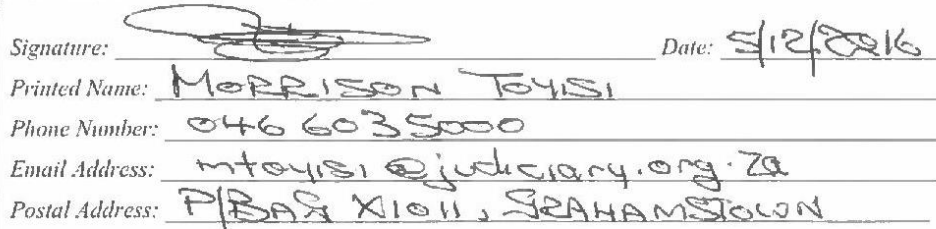 Signature: Date: 5/12/2016
Printed Name: MORRISON TOYISI
Phone Number: 046 6035000
Email Address: mtoyisi@judiciary.org.za
Postal Address: P/BAG X1011, GRAHAMSTOWN